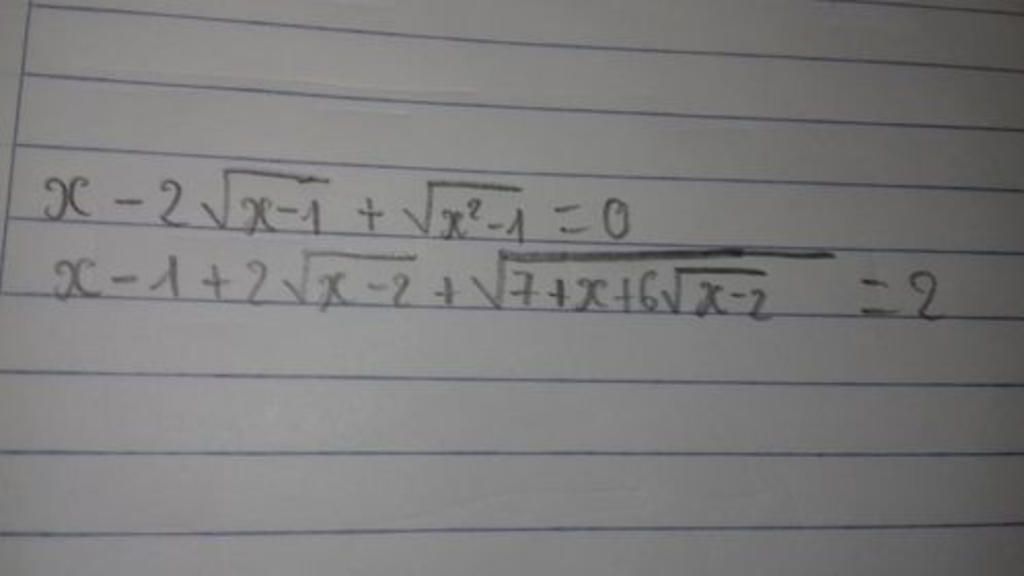 x - 2√(x-1) + √(x²-1) = 0
x - 1 + 2√(x-2) + √(7+x+6√(x-2)) = 2